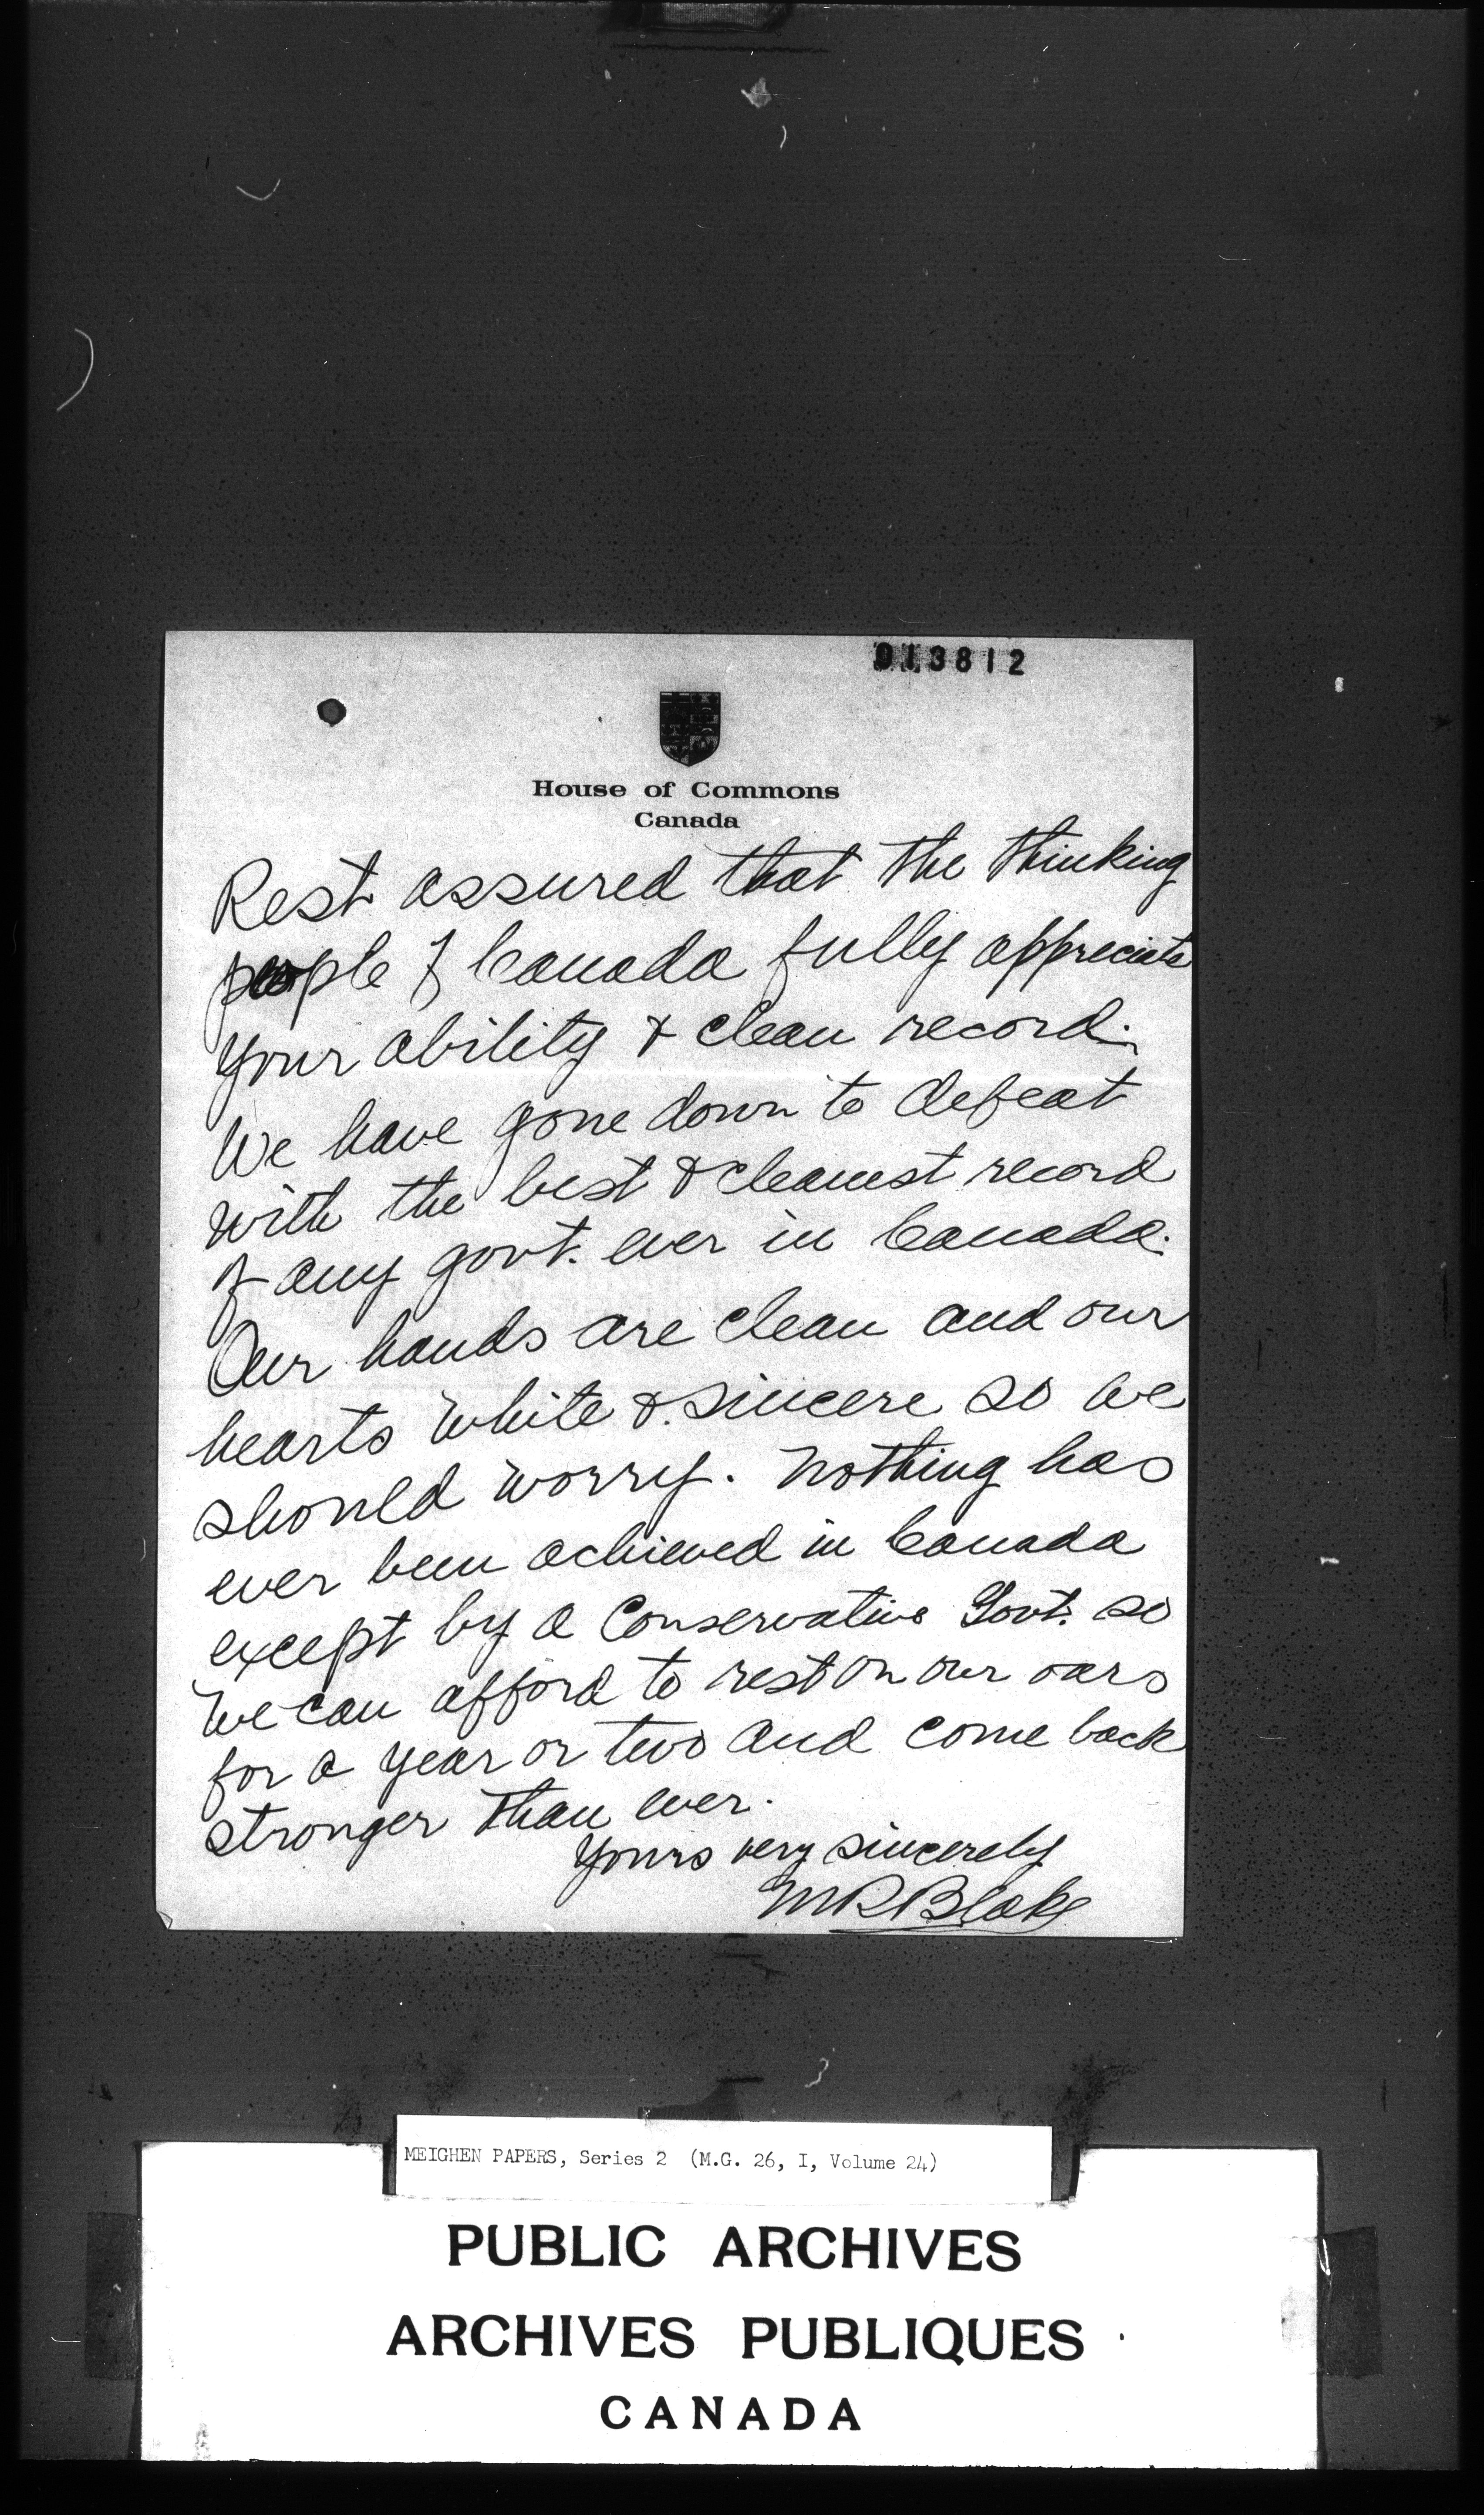 013812
House of Commons
Canada
Rest assured that the thinking
people of Canada fully appreciate
your ability & clean record.
We have gone down to defeat
with the best & cleanest record
of any govt. ever in Canada.
Our hands are clean and our
hearts white & sincere so we
should worry. Nothing has
ever been achieved in Canada
except by a Conservative Govt. so
we can afford to rest on our oars
for a year or two and come back
stronger than ever.
Yours very sincerely
MRBlake
MEIGHEN PAPERS, Series 2 (M.G. 26, I, Volume 24)
PUBLIC ARCHIVES
ARCHIVES PUBLIQUES
CANADA